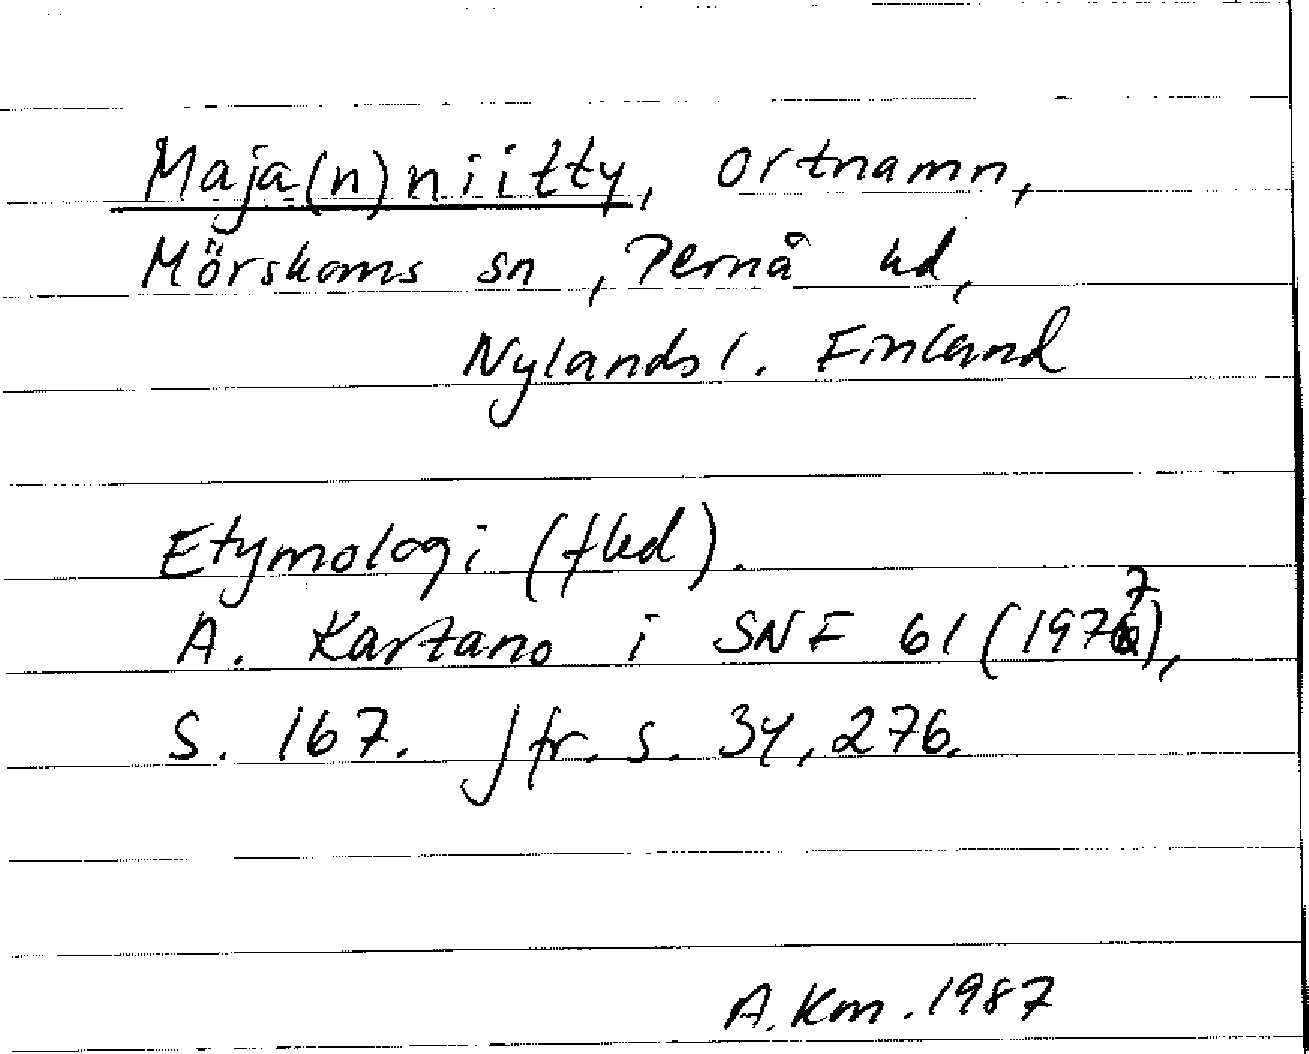 Maja(n)niitty, ortnamn,
Mörskoms sn, Pernå hd,
Nylands l. Finland
Etymologi (fled).
A. Kartano i SNF 61 (1977),
S. 167. Jfr. s. 34, 276.
A. Km. 1987